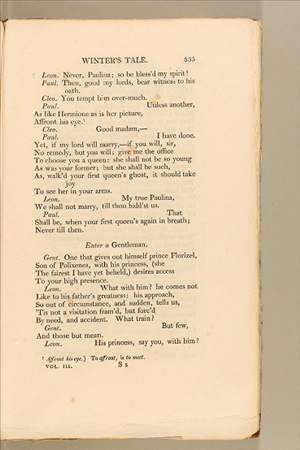 WINTER'S TALE. 535
Leon. Never, Paulina; so be bless'd my spirit!
Paul. Then, good my lords, bear witness to his
oath.
Cleo. You tempt him over-much.
Paul. Unless another,
As like Hermione as is her picture,
Affront his eye.⁷
Cleo. Good madam,—
Paul. I have done.
Yet, if my lord will marry,—if you will, sir,
No remedy, but you will; give me the office
To choose you a queen: she shall not be so young
As was your former; but she shall be such,
As, walk'd your first queen's ghost, it should take
joy
To see her in your arms.
Leon. My true Paulina,
We shall not marry, till thou bidd'st us.
Paul. That
Shall be, when your first queen's again in breath;
Never till then.
Enter a Gentleman.
Gent. One that gives out himself prince Florizel,
Son of Polixenes, with his princess, (she
The fairest I have yet beheld,) desires access
To your high presence.
Leon. What with him? he comes not
Like to his father's greatness: his approach,
So out of circumstance, and sudden, tells us,
'Tis not a visitation fram'd, but forc'd
By need, and accident. What train?
Gent. But few,
And those but mean.
Leon. His princess, say you, with him?
⁷ Affront his eye.] To affront, is to meet.
VOL. III. S s